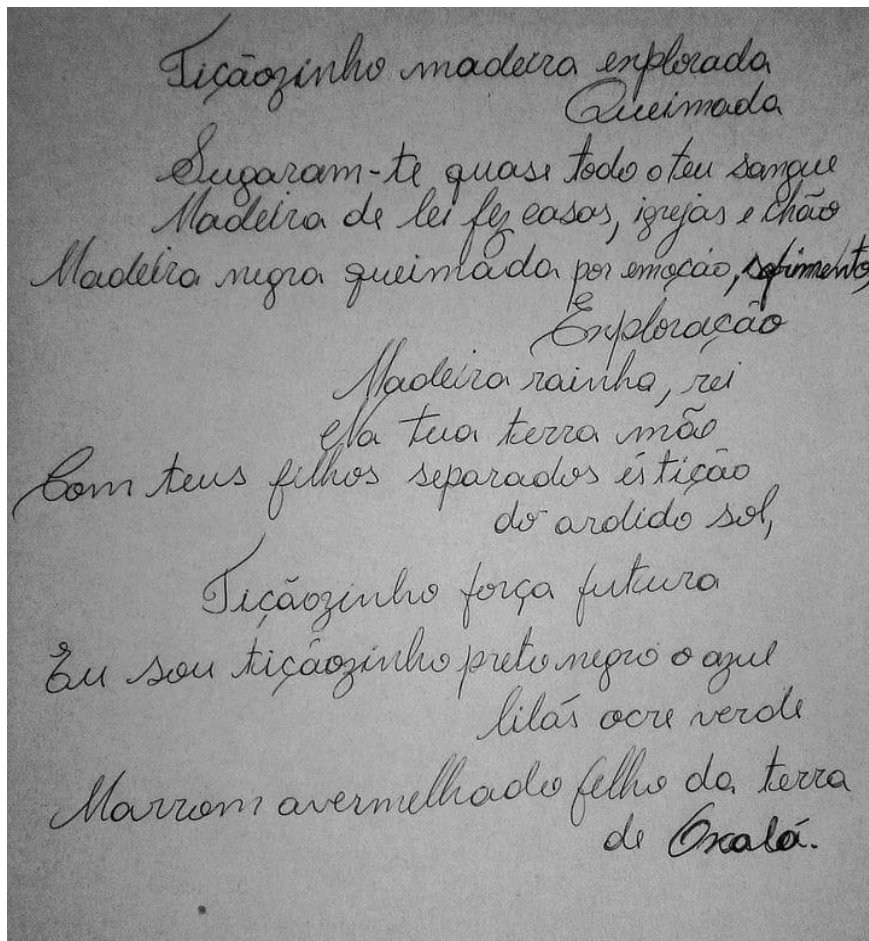 Tiçãozinho madeira explorada
Queimada
Sugaram-te quase todo o teu sangue
Madeira de lei fez casas, igrejas e chão
Madeira negra queimada por emoção, sofrimento,
Exploração
Madeira rainha, rei
Na tua terra mão
Com teus filhos separados és tição
do ardido sol,
Tiçãozinho força futura
Eu sou tiçãozinho preto negro o azul
lilás ocre verde
Marrom avermelhado filho da terra
de Oxalá.